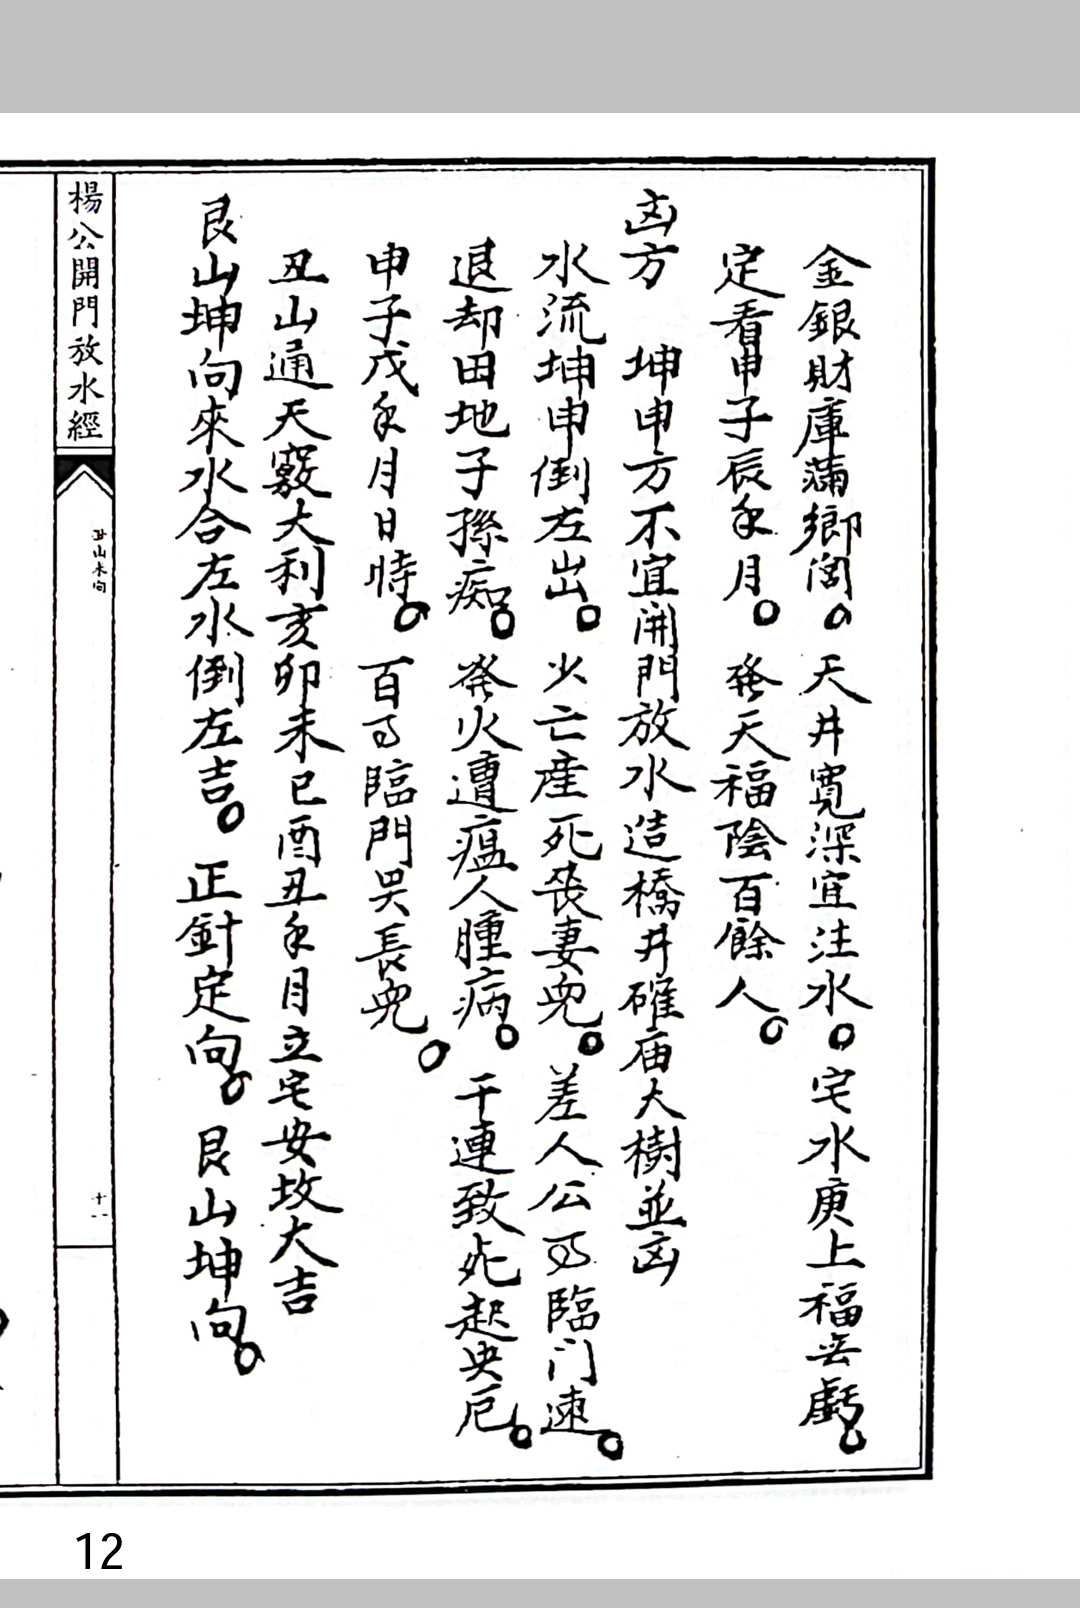 金銀財庫滿鄉閭。天井寬深宜注水。宅水庚上福無虧。
定看申子辰年月。發天福陰百餘人。
凶方　坤申方不宜開門放水造橋井碓庙大樹並凶
水流坤申倒左出。少亡產死喪妻兒。差人公事臨门速。
退却田地子孫痴。發火遭瘟人腫病。干連致死起央厄。
申子戊年月日時。百事臨門哭長兒。
丑山通天竅大利亥卯未巳酉丑年月立宅安坟大吉
艮山坤向來水合左水倒左吉。正針定向。艮山坤向。
楊公開門放水經
丑山未向
十一
12